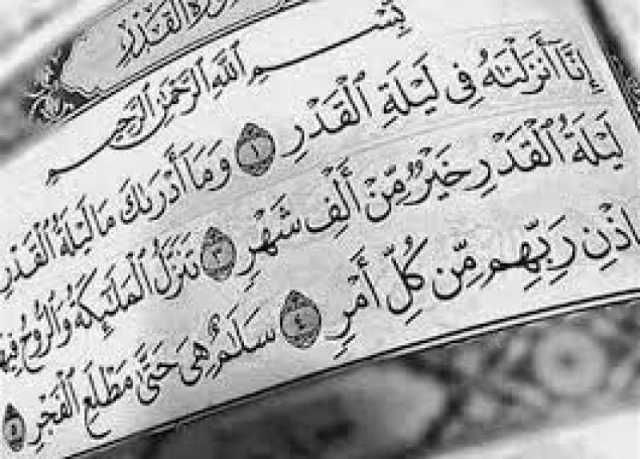 سُورَةُ الْقَدْرِ
بِسْمِ اللَّهِ الرَّحْمَٰنِ الرَّحِيمِ
إِنَّا أَنْزَلْنَٰهُ فِى لَيْلَةِ الْقَدْرِ ١ وَمَا أَدْرَىٰكَ مَا لَيْلَةُ الْقَدْرِ
لَيْلَةُ الْقَدْرِ خَيْرٌ مِّنْ أَلْفِ شَهْرٍ ٣ تَنَزَّلُ الْمَلَٰٓئِكَةُ وَالرُّوحُ فِيهَا
إِذْنِ رَبِّهِم مِّن كُلِّ أَمْرٍ ٤ سَلَٰمٌ هِىَ حَتَّىٰ مَطْلَعِ الْفَجْرِ ٥